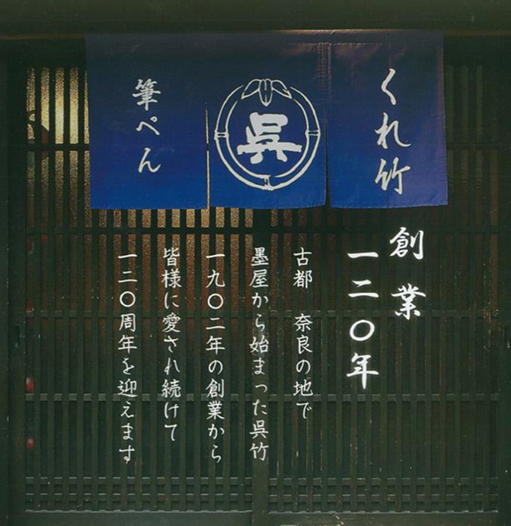 くれ竹
呉
筆ぺん
創業
一二〇年
古都　奈良の地で
墨屋から始まった呉竹
一九〇二年の創業から
皆様に愛され続けて
一二〇周年を迎えます